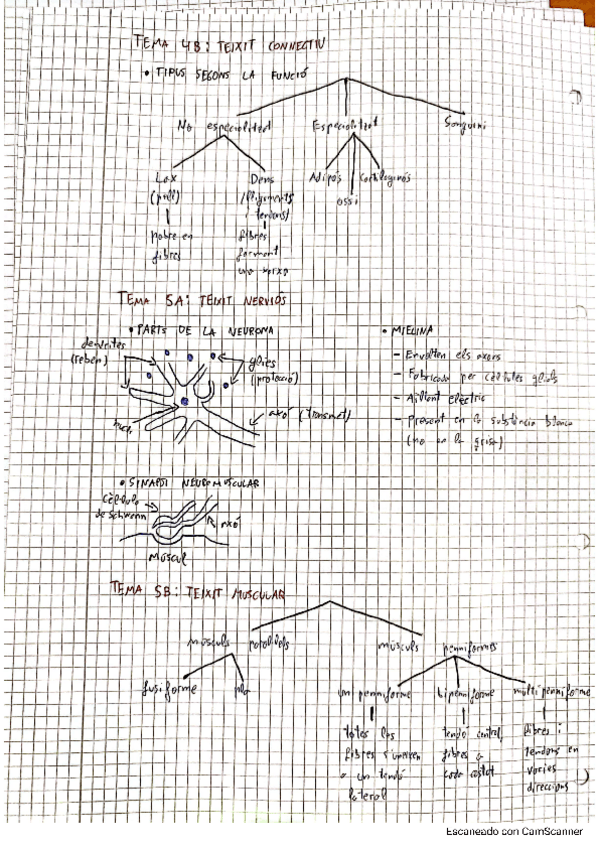 TEMA 4B: TEIXIT CONNECTIU
• TIPUS SEGONS LA FUNCIÓ
No especialitzat
Especialitzat
Sanguini
Lax
(pell)
pobre en
fibres
Dens
(lligaments
i tendons)
fibres
formant
una xarxa
Adipós
ossi
Cartilaginós
TEMA 5A: TEIXIT NERVIÓS
• PARTS DE LA NEURONA
dendrites
(reben)
glies
(protecció)
axó (transmet)
nucli
• MIELINA
- Envolten els axons
- Fabricada per cèl·lules glials
- Aïllant elèctric
- Present en la substància blanca
(no en la grisa)
• SINAPSI NEUROMUSCULAR
Cèl·lula
de Schwann
axó
MÚSCUL
TEMA 5B: TEIXIT MUSCULAR
músculs paral·lels
músculs penniformes
fusiforme
pla
unipenniforme
bipenniforme
multipenniforme
totes les
fibres s'uneixen
a un tendó
lateral
tendó central,
fibres a
cada costat
fibres i
tendons en
varies
direccions
Escaneado con CamScanner